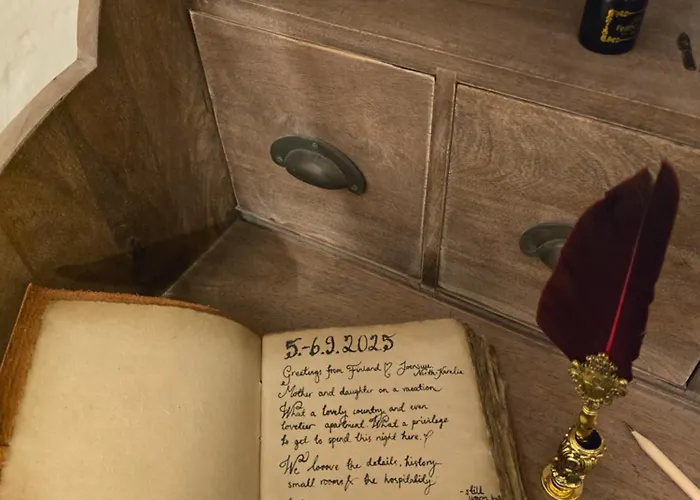 5.-6.9.2025
Greetings from Finland ♡ Joensuu
North-Karelia
Mother and daughter on a vacation.
What a lovely country and even
lovelier apartment. What a privilege
to get to spend this night here. ♡
We looove the details, history
small rooms & the hospitality
- still